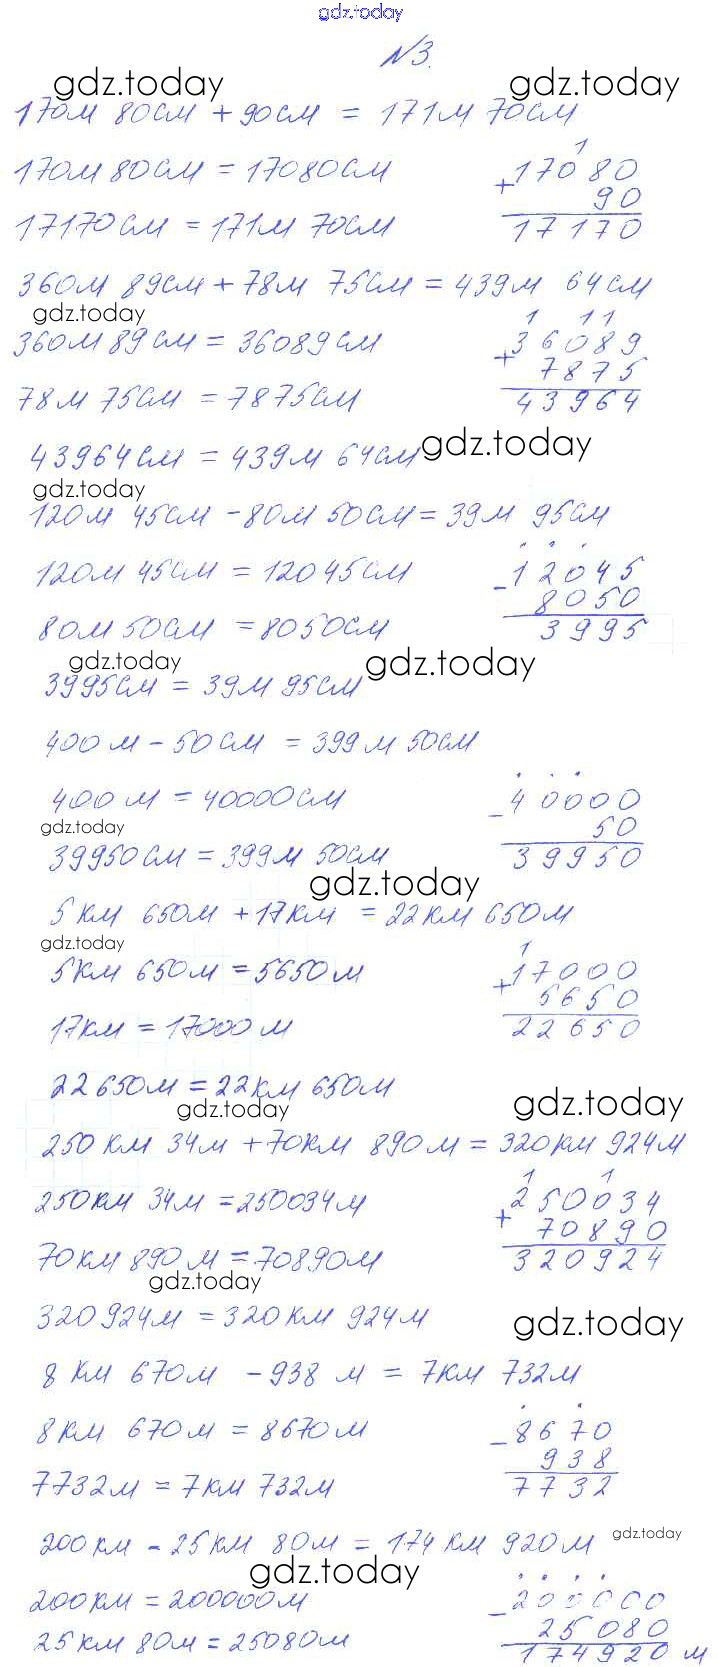 gdz.today
№3.
gdz.today gdz.today
170м 80см + 90см = 171м 70см
1
170м 80см = 17080см + 17080
90
17170см = 171м 70см 17170
360м 89см + 78м 75см = 439м 64см
gdz.today 1 11
360м 89см = 36089см + 36089
7875
78м 75см = 7875см 43964
43964см = 439м 64см gdz.today
gdz.today
120м 45см - 80м 50см = 39м 95см
120м 45см = 12045см - 12045
8050
80м 50см = 8050см 3995
gdz.today gdz.today
3995см = 39м 95см
400м - 50см = 399м 50см
400м = 40000см - 40000
gdz.today 50
39950см = 399м 50см 39950
gdz.today
5км 650м + 17км = 22км 650м
gdz.today 1
5км 650м = 5650м + 17000
5650
17км = 17000м 22650
22650м = 22км 650м
gdz.today gdz.today
250км 34м + 70км 890м = 320км 924м
1 1
250км 34м = 250034м + 250034
70890
70км 890м = 70890м 320924
gdz.today
320924м = 320км 924м gdz.today
8км 670м - 938м = 7км 732м
8км 670м = 8670м - 8670
938
7732м = 7км 732м 7732
200км - 25км 80м = 174км 920м gdz.today
gdz.today
200км = 200000м - 200000
25080
25км 80м = 25080м 174920м